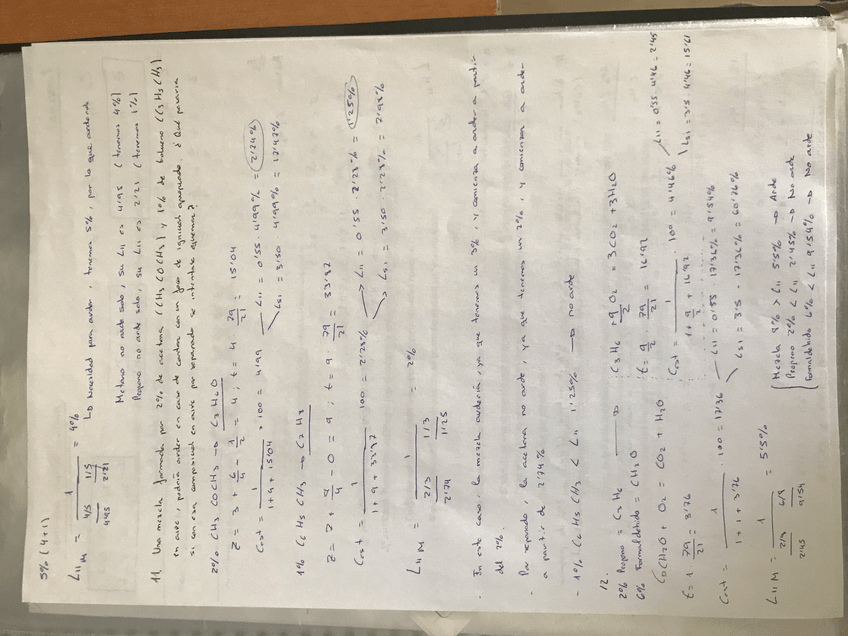 5% (4+1)
LIIM = 1 / (4/5 / 4'95 + 1/5 / 2'21) = 4%
↳ necesidad para arder, tenemos 5%, por lo que arderá
Metano no arde solo, su LII es 4'95 (tenemos 4%)
Propano no arde solo, su LII es 2'21 (tenemos 1%)
11. Una mezcla formada por 2% de acetona (CH3COCH3) y 1% de tolueno (C6H5CH3)
en aire, podría arder en caso de contar con un foco de ignición apropiado. ¿Qué pasaría
si con esa composición en aire por separado se intentase quemar?
2% CH3 COCH3 → C3 H6 O
Z = 3 + 6/4 - 1/2 = 4 ; t = 4 · 79/21 = 15'04
Cest = 1 / (1+4+15'04) · 100 = 4'99
LII = 0'55 · 4'99% = 2'74%
LSI = 3'50 · 4'99% = 17'47%
1% C6 H5 CH3 → C7 H8
Z = 7 + 8/4 - 0 = 9 ; t = 9 · 79/21 = 33'87
Cest = 1 / (1+9+33'87) · 100 = 2'27%
→ LII = 0'55 · 2'27% = 1'25%
→ LSI = 3'50 · 2'27% = 7'98%
LIIM = 1 / (2/3 / 2'74 + 1/3 / 1'25) = 2%
- En este caso, la mezcla ardería, ya que tenemos un 3%, y comienza a arder a partir
del 2%.
- Por separado, la acetona no arde, ya que tenemos un 2%, y comienza a arder
a partir de 2'74%
- 1% C6 H5 CH3 < LII 1'25% → no arde
12.
2% Propeno = C3 H6 → C3 H6 + 9/2 O2 = 3CO2 + 3H2O
6% Formaldehido = CH2O
t = 9/2 · 79/21 = 16'92
CH2O + O2 = CO2 + H2O
Cest = 1 / (1 + 9/2 + 16'92) · 100 = 4'46%
LII = 0'55 · 4'46 = 2'45
LSI = 3'5 · 4'46 = 15'61
t = 1 · 79/21 = 3'76
Cest = 1 / (1+1+3'76) · 100 = 17'36
LII = 0'55 · 17'36% = 9'54%
LSI = 3'5 · 17'36% = 60'76%
LIIM = 1 / (2/8 / 2'45 + 6/8 / 9'54) = 5'5%
Mezcla 8% > LII 5'5% → Arde
Propeno 2% < LII 2'45% → No arde
Formaldehido 6% < LII 9'54% → No arde